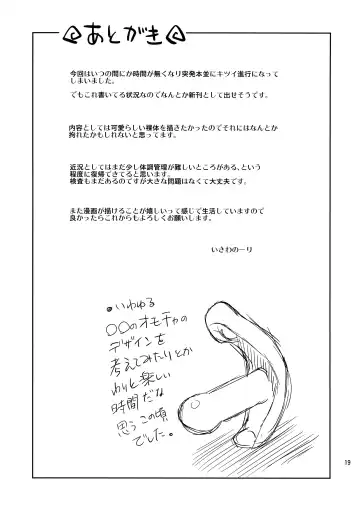 あとがき
今回はいつの間にか時間が無くなり突発本並にキツイ進行になって
しまいました。
でもこれ書いてる状況なのでなんとか新刊として出せそうです。
内容としては可愛らしい裸体を描きたかったのでそれにはなんとか
拘れたかもしれないと思ってます。
近況としてはまだ少し体調管理が難しいところがある、という
程度に復帰できてると思います。
検査もまだあるのですが大きな問題はなくて大丈夫です。
また漫画が描けることが嬉しいって感じで生活していますので
良かったらこれからもよろしくお願いします。
いさわのーり
●いわゆる
〇〇のオモチャの
デザインを
考えてみたりとか
わりと楽しい
時間だな
思うこの頃
でした。
19